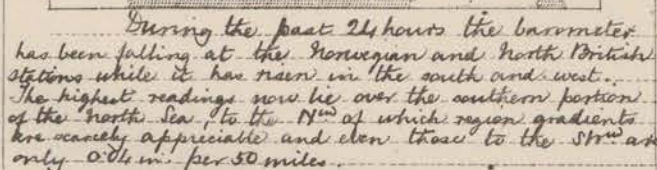 During the past 24 hours the barometer
has been falling at the Norwegian and North British
stations while it has risen in the south and west.
The highest readings now lie over the southern portion
of the North Sea, to the Nwd of which region gradients
are scarcely appreciable and even those to the SWwd are
only 0.04 in. per 50 miles.